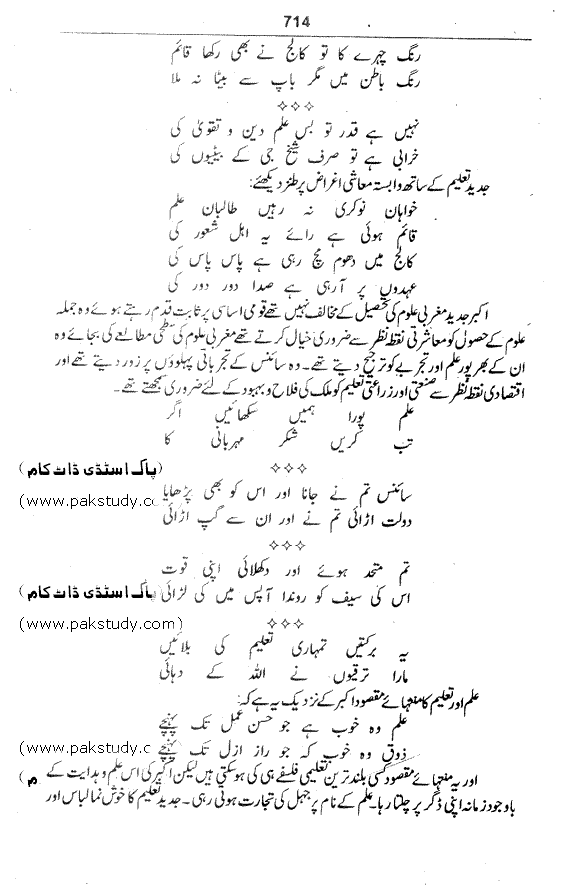 714
رنگ چہرے کا تو کالج نے بھی رکھا قائم
رنگ باطن میں مگر باپ سے بیٹا نہ ملا
✧✧✧
نہیں ہے قدر تو بس علم دین و تقویٰ کی
خرابی ہے تو صرف شیخ جی کے بیٹیوں کی
جدید تعلیم کے ساتھ وابستہ معاشی اغراض پر طنز دیکھئے:
خواہان نوکری نہ رہیں طالبان علم
قائم ہوئی ہے رائے یہ اہل شعور کی
کالج میں دھوم مچ رہی ہے پاس پاس کی
عہدوں پر آ رہی ہے صدا دور دور کی
اکبر جدید مغربی علوم کی تحصیل کے مخالف نہیں تھے قومی اساسی پر ثابت قدم رہتے ہوئے وہ جملہ
علوم کے حصول کو معاشرتی نقطہ نظر سے ضروری خیال کرتے تھے مغربی علوم کی سطحی مطالعے کی بجائے وہ
ان کے بھرپور علم اور تجربے کو ترجیح دیتے تھے۔ وہ سائنس کے تجرباتی پہلوؤں پر زور دیتے تھے اور
اقتصادی نقطہ نظر سے صنعتی اور زراعتی تعلیم کو ملک کی فلاح و بہبود کے لئے ضروری سمجھتے تھے۔
علم پورا ہمیں سکھائیں اگر
تب کریں شکر مہربانی کا
✧✧✧ (پاک اسٹڈی ڈاٹ کام)
سائنس تم نے جانا اور اس کو بھی پڑھایا (www.pakstudy.co
دولت اڑائی تم نے اور ان سے گپ اڑائی
✧✧✧
تم متحد ہوئے اور دکھلائی اپنی قوت
اس کی سیف کو روندا آپس میں کی لڑائی (پاک اسٹڈی ڈاٹ کام)
✧✧✧ (www.pakstudy.com)
یہ برکتیں تمہاری تعلیم کی بلائیں
مارا ترقیوں نے اللہ کے دہائی
علم اور تعلیم کا منتہائے مقصود اکبر کے نزدیک یہ ہے کہ:
علم وہ خوب ہے جو حسن عمل تک پہنچے
ذوق وہ خوب کہ جو راز ازل تک پہنچے (www.pakstudy.c
اور یہ منتہائے مقصود کسی بلند ترین تعلیمی فلسفے ہی کی ہو سکتی ہیں لیکن اکبر کی اس علم و ہدایت کے م)
باوجود زمانہ اپنی ڈگر پر چلتا رہا۔ علم کے نام پر جہل کی تجارت ہوتی رہی۔ جدید تعلیم کا خوش نما لباس اور